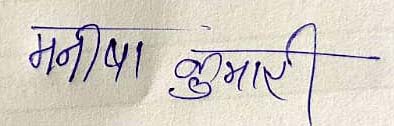 मनीषा कुमारी